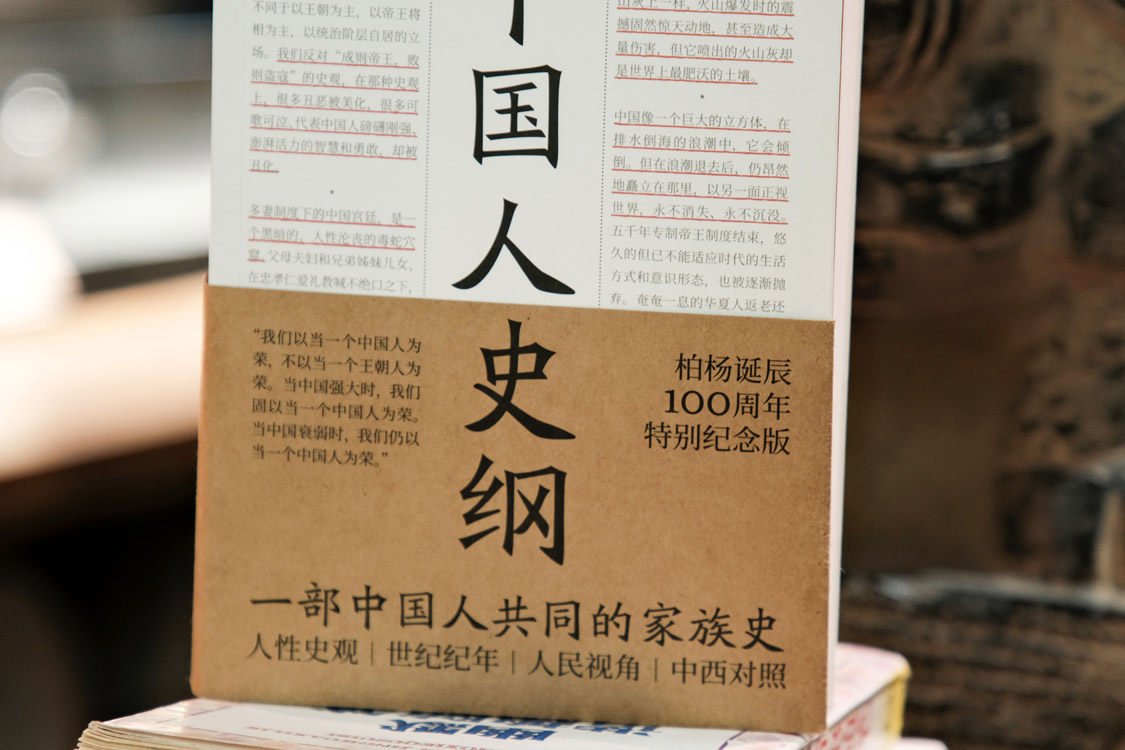 不同于以王朝为主，以帝王将
相为主，以统治阶层自居的立
场。我们反对“成则帝王，败
则盗寇”的史观，在那种史观
上，很多丑恶被美化，很多可
歌可泣，代表中国人磅礴刚强、
澎湃活力的智慧和勇敢，却被
丑化。
*
多妻制度下的中国宫廷，是一
个黑暗的、人性沦丧的毒蛇穴
窟。父母夫妇和兄弟姊妹儿女，
在忠孝仁爱礼教喊不绝口之下，
中国人史纲
出灰上一样，火山爆发时的震
撼固然惊天动地，甚至造成大
量伤害，但它喷出的火山灰却
是世界上最肥沃的土壤。
*
中国像一个巨大的立方体，在
排水倒海的浪潮中，它会倾
倒。但在浪潮退去后，仍昂然
地矗立在那里，以另一面正视
世界，永不消失、永不沉没。
五千年专制帝王制度结束，悠
久的但已不能适应时代的生活
方式和意识形态，也被逐渐抛
弃。奄奄一息的华夏人返老还
“我们以当一个中国人为
荣，不以当一个王朝人为
荣。当中国强大时，我们
固以当一个中国人为荣。
当中国衰弱时，我们仍以
当一个中国人为荣。”
柏杨诞辰
100周年
特别纪念版
一部中国人共同的家族史
人性史观|世纪纪年|人民视角|中西对照